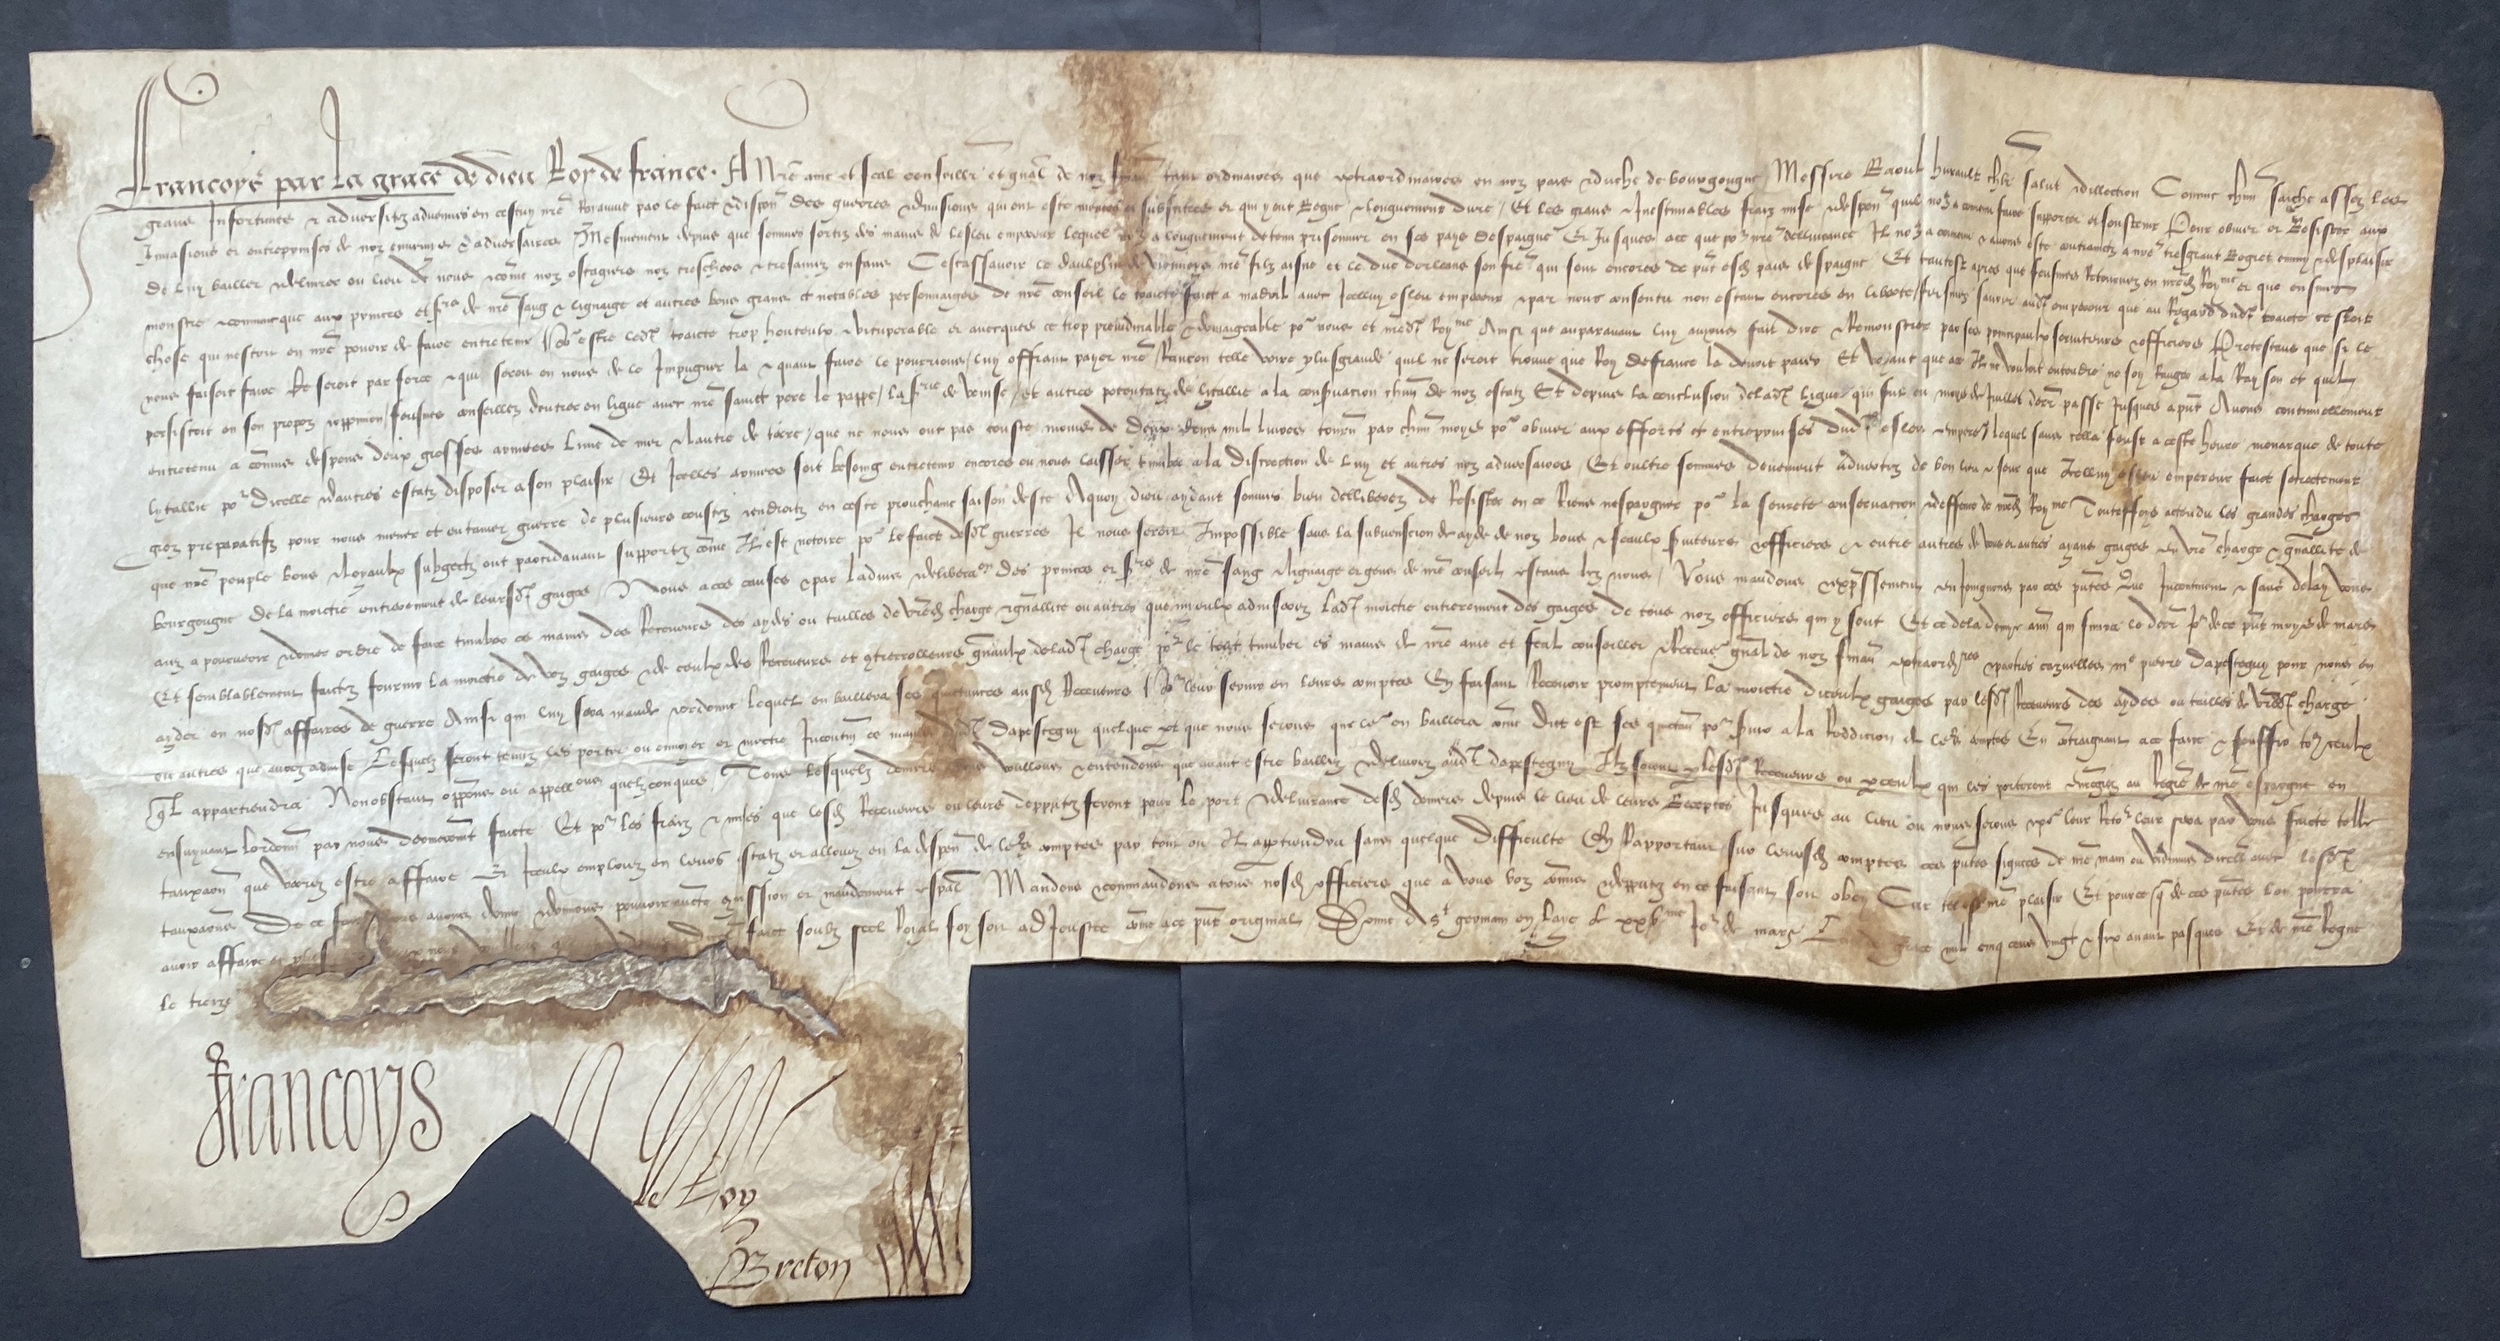 Francoys par La grace de dieu Roy de france. A Nre ame et feal conseiller et gnal de noz finan tant ordinaires que extraordinaires en noz pais & duche de bourgougne Messire Raoul hurault chlr Salut & dillection Comme chun saiche assez Les
grans Infortunes & adversitez advenues en cestuy nre Royaume par le faict & dispon des guerres & divisions qui ont este menees et suscitees et qui y ont Regne & longuement dure / Et les grans & Inestimables fraiz mises & despens quil nous a convenu faire supporter et soustenir Pour obvier et Resister aux
Invasions et entreprinses de noz ennemys & adversaires Mesmement depuis que sommes sortiz des mains de lesleu empereur lequel nous a longuement detenu prisonnier en ses pays despaigne Et Jusques ace que por nre dellivrance Il nous a convenu & avons este contrainctz a nre tresgrant Regret ennuy & desplaisir
de luy bailler & delivrer ou lieu de nous & comme noz ostagiers noz treschers & tresamez enfans Cestassavoir le daulphin de viennoys nre filz aisne et le duc dorleans son frere qui sont encores de pnt esd pais despaigne Et tantost apres que feusmes Retournez en nred Royme et que eusmes
monstre & communique aux princes et srs de nre sang & lignaige et autres bons grans et notables personnaiges de nre conseil le traicte faict a madril avec Icelluy esleu empereur & par nous consentu non estant encores en liberte / feismes savoir aud empereur que au Regard dud traicte cestoit
chose qui nestoit en nre povoir de faire entretenir / Por estre led traicte trop honteulx & vituperable et avecques ce trop preiudiciable & dommaigeable por nous et nred Royme Ainsi que auparavant luy avyons fait dire & Remonstrer par ses principaulx serviteurs & officiers Protestans que si le
nous faisoit faire Ce seroit par force & qui seroit en nous de le Impugner la & quant faire le pourrions / luy offrant payer nre Rancon telle voire plusgrande quil ne seroit trouve que Roy defrance la devoit paier Et voyant que ace Il ne vouloit entendre ne soy Renger a la Raison et quil
persistoit en son propoz & oppinion feusmes conseillez dentrer en ligue avec nre sainct pere le pappe / la srie de venise / et autres potentatz de lytallie a la conservation chun de noz estatz Et depuis la conclusion delad ligue qui fut en moys de Juillet derr passe Jusques apnt Avons continuellement
entretenu a communs despens deux grosses armees Lune de mer & lautre de terre / que ne nous ont pas couste moins de deux cens mil livres tourn par chun moys por obvier aux effors et entreprinses dud esleu empereur lequel sans cella feust a ceste heure monarque de toute
lytallie por dicelle & dautres estatz disposer a son plaisir Et Icelles armees soit besoing entretenir encores ou nous laisser tumber a la discrection de luy et autres noz adversaires / Et oultre sommes deuement advertiz de bon lieu & seur que Icelluy esleu empereur faict secretement
gros preparatifz pour nous mener et entamer guerre de plusieurs coustez & endroitz en ceste prouchaine saison deste Aquoy dieu aydant sommes bien delliberez de Resister en ce Riens nespargner por la seurete conservation & deffence de nred Royme Touteffoys actendu les grandes charges
que nre peuple bons & loyaulx subgectz ont pardavant supportez comme Il est notoire por le faict desd guerres Il nous seroit Impossible sans la subvencion de ayde de noz bons & feaulx serviteurs & officiers & entre autres de vous et autres ayans gaiges en vre charge & gnallite de
bourgougne de la moictie entierement de leursd gaiges / Nous aces causes & par ladvis & deliberaon des princes et srs de nre sang & lignaige et gens de nre conseil estans lez nous / Vous mandons & expressement enJoignons par ces pntes Que Incontinent & sans delay vous
aiez a pourveoir & donner ordre de faire tumber es mains des Receveurs des aydes ou tailles de vred charge & gnallite ou autres que mieulx adviserez lad moictie entierement des gaiges de tous noz officiers qui y sont Et ce deladempr annee qui finira le derr jor de ce pnt moys de mars
Et semblablement faictes fournir la moictie de voz gaiges & de ceulx des Receveurs et contrerolleurs gnaulx delad charge por le tout tumber es mains de nre ame et feal conseiller & Receveur gnal de noz finan extraordres & parties cazuelles me pierre dapesteguy pour nous en
ayder en nosd affaires de guerre Ainsi qui luy sera mande & ordonne Lequel en baillera ses quictances ausd Receveurs / Por leur servir en leurs comptes En faisant Recevoir promptement la moictie diceulx gaiges par lesd Receveurs des aydes ou tailles de vred charge
ou autres que avrez advise Lesquelz seront tenuz les porter ou envoyer et mectre Incontin es mains dud dapesteguy quelque part que nous serons que les en baillera comme dict est ses quictan por servir a la Reddicion de leurs comptes En contraignant ace faire & souffrir tous ceulx
quil appartiendra Nonobstant opposons ou appellons quelzconques / Tous Lesquelz deniers nous voullons & entendons que avant estre baillez & delivrez aud dapesteguy Ilz soient par lesd Receveurs ou par ceulx qui les porteront enregez au Regre de nre espargne en
ensuyvant lordonn par nous derrenierement faicte Et por les fraiz & mises que lesd Receveurs ou leurs depputez feront pour le port & delivrance desd deniers depuis le lieu de leurs Receptes Jusques au lieu ou nous serons & por leur Retor leur sera par vous faicte telle
tauxaon que verrez estre affaire Et Iceulx emploiez en leurs estatz et allouez en la despen de leurs comptes par tout ou Il appartiendra sans quelque difficulte En Rapportant sur leursd comptes ces pntes signees de nre main ou vidimus dicelles avec lesd
tauxaons De ce faire vous avons donne & donnons pouvoir aucte commission et mandement espal Mandons & commandons a tous nosd officiers que a vous voz commis & depputez en ce faisant soit obey Car tel est nre plaisir Et pource que de ces pntes lon pourra
avoir affaire en plus faict soubz seel Royal foy soit adJoustee comme ace pnt original Donne A st germain en laye Le xxvme Jor de mars Lan de grace mil cinq cens vingt & six avant pasques Et de nre Regne
le treize
Francoys
le Roy
Breton